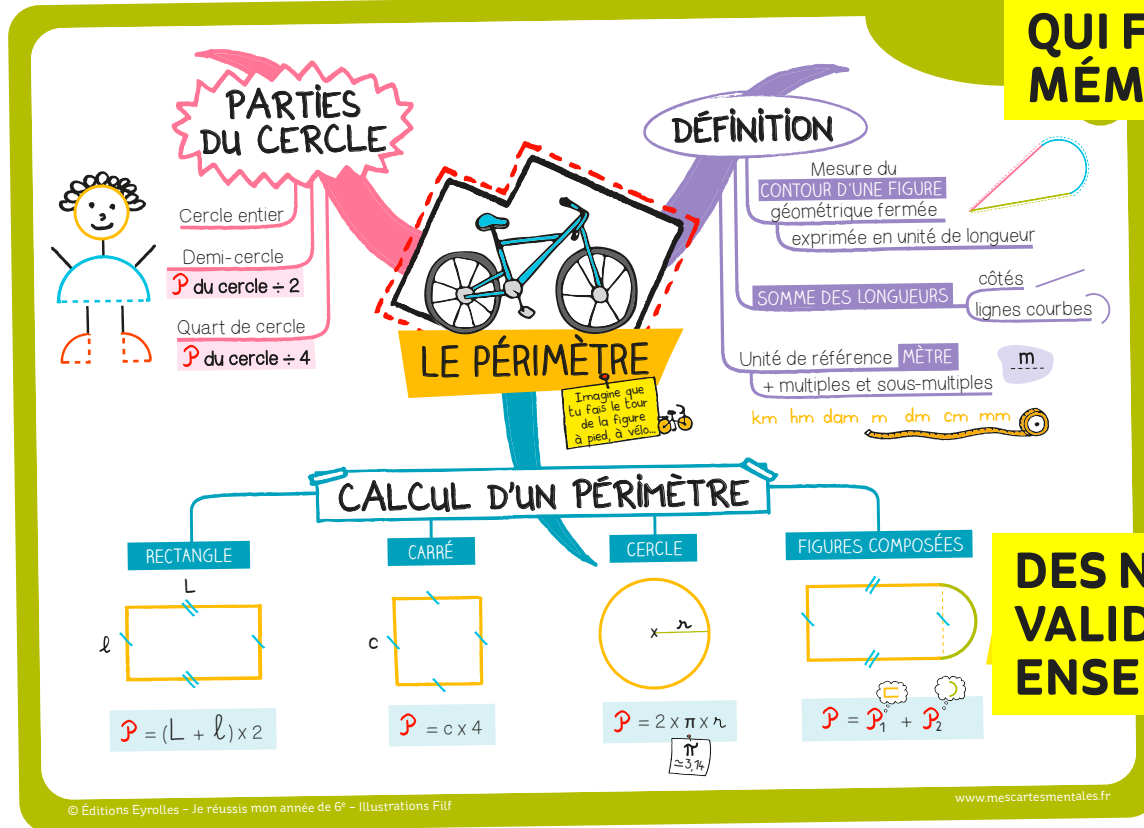 QUI F
MÉM
PARTIES
DU CERCLE
Cercle entier
Demi-cercle
P du cercle ÷ 2
Quart de cercle
P du cercle ÷ 4
DÉFINITION
Mesure du
CONTOUR D'UNE FIGURE
géométrique fermée
exprimée en unité de longueur
SOMME DES LONGUEURS
côtés
lignes courbes
Unité de référence MÈTRE
m
+ multiples et sous-multiples
km hm dam m dm cm mm
LE PÉRIMÈTRE
Imagine que
tu fais le tour
de la figure
à pied, à vélo...
CALCUL D'UN PÉRIMÈTRE
RECTANGLE
L
ℓ
P = (L + ℓ) x 2
CARRÉ
c
P = c x 4
CERCLE
x r
P = 2 x π x r
π
≃ 3,14
FIGURES COMPOSÉES
P = P1 + P2
DES N
VALID
ENSE
© Éditions Eyrolles – Je réussis mon année de 6e – Illustrations Filf
www.mescartesmentales.fr